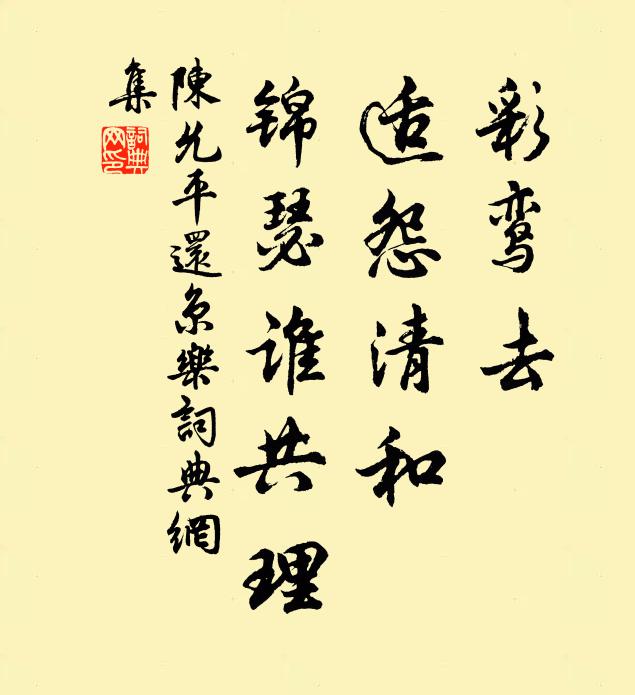 彩鸾去
适怨清和
锦瑟谁共理
陳允平還京樂詞典網
集
詞典网印